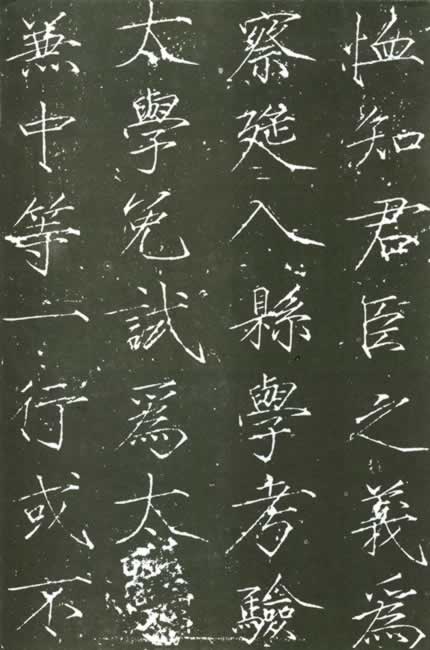 恤知君臣之義爲
察延入縣學考驗
太學免試爲太
兼中等一行或不